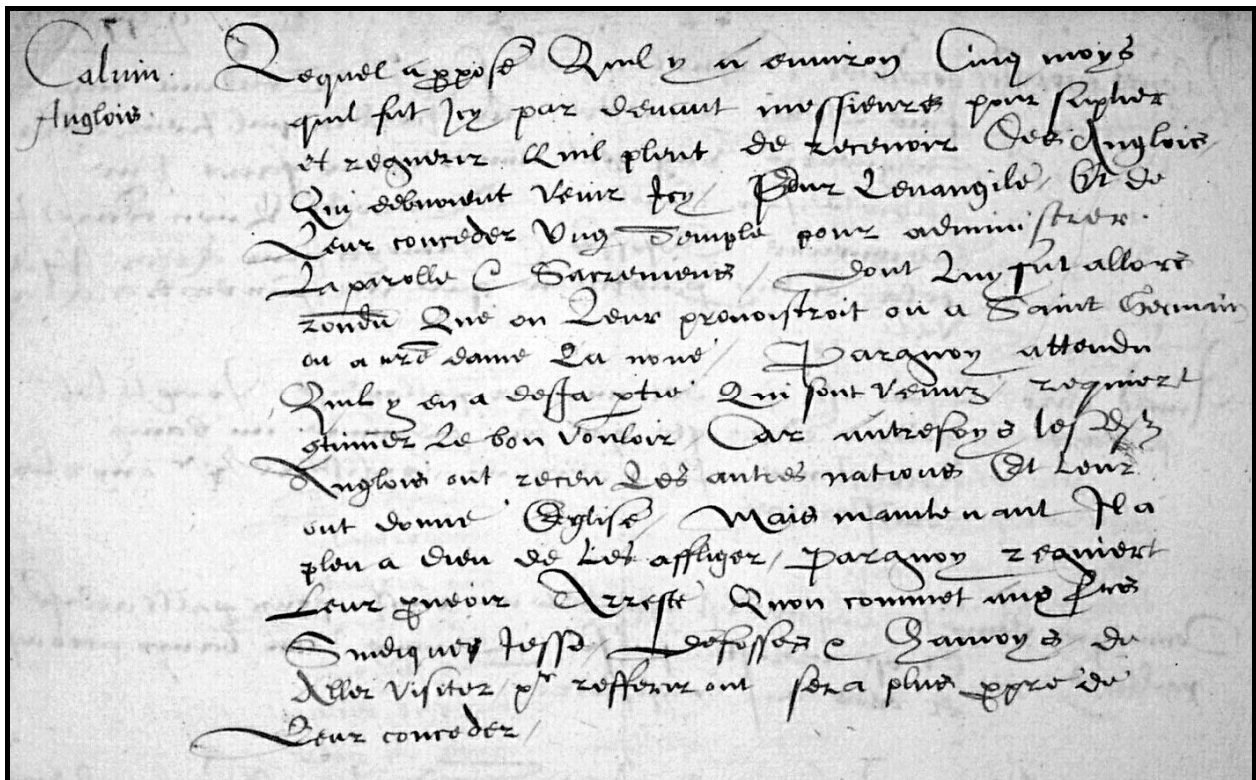 Calvin.
Anglois.
Lequel a ppose Quil y a environ Cinq moys
quil fut Icy par devant messieurs pour suplier
et requerir Quil pleut de recevoir Des Anglois /
Qui debvoient venir Icy / Pour Levangile / Et de
Leur conceder Ung Temple pour administrer.
La parolle & Sacremens / Dont Luy fut allors
rondu Que on Leur provoistroit ou a Saint Germain
ou a nre dame La nove / Parquoy attendu
Quil y en a desja ptie Qui sont venuz / requiert
9tinuer Le bon vouloir / Car autrefoys les dz
Anglois ont receu Les autres nations Et Leur
ont donne Eglise / Mais maintenant Il a
pleu a Dieu de Les affliger / Parquoy requiert
Leur pveoir Arreste Quon commet aux srs
Sindiques Jesse / Defosses & Chamoys de
Aller visiter / pr refferir ont sera plus ppre de
Leur conceder /